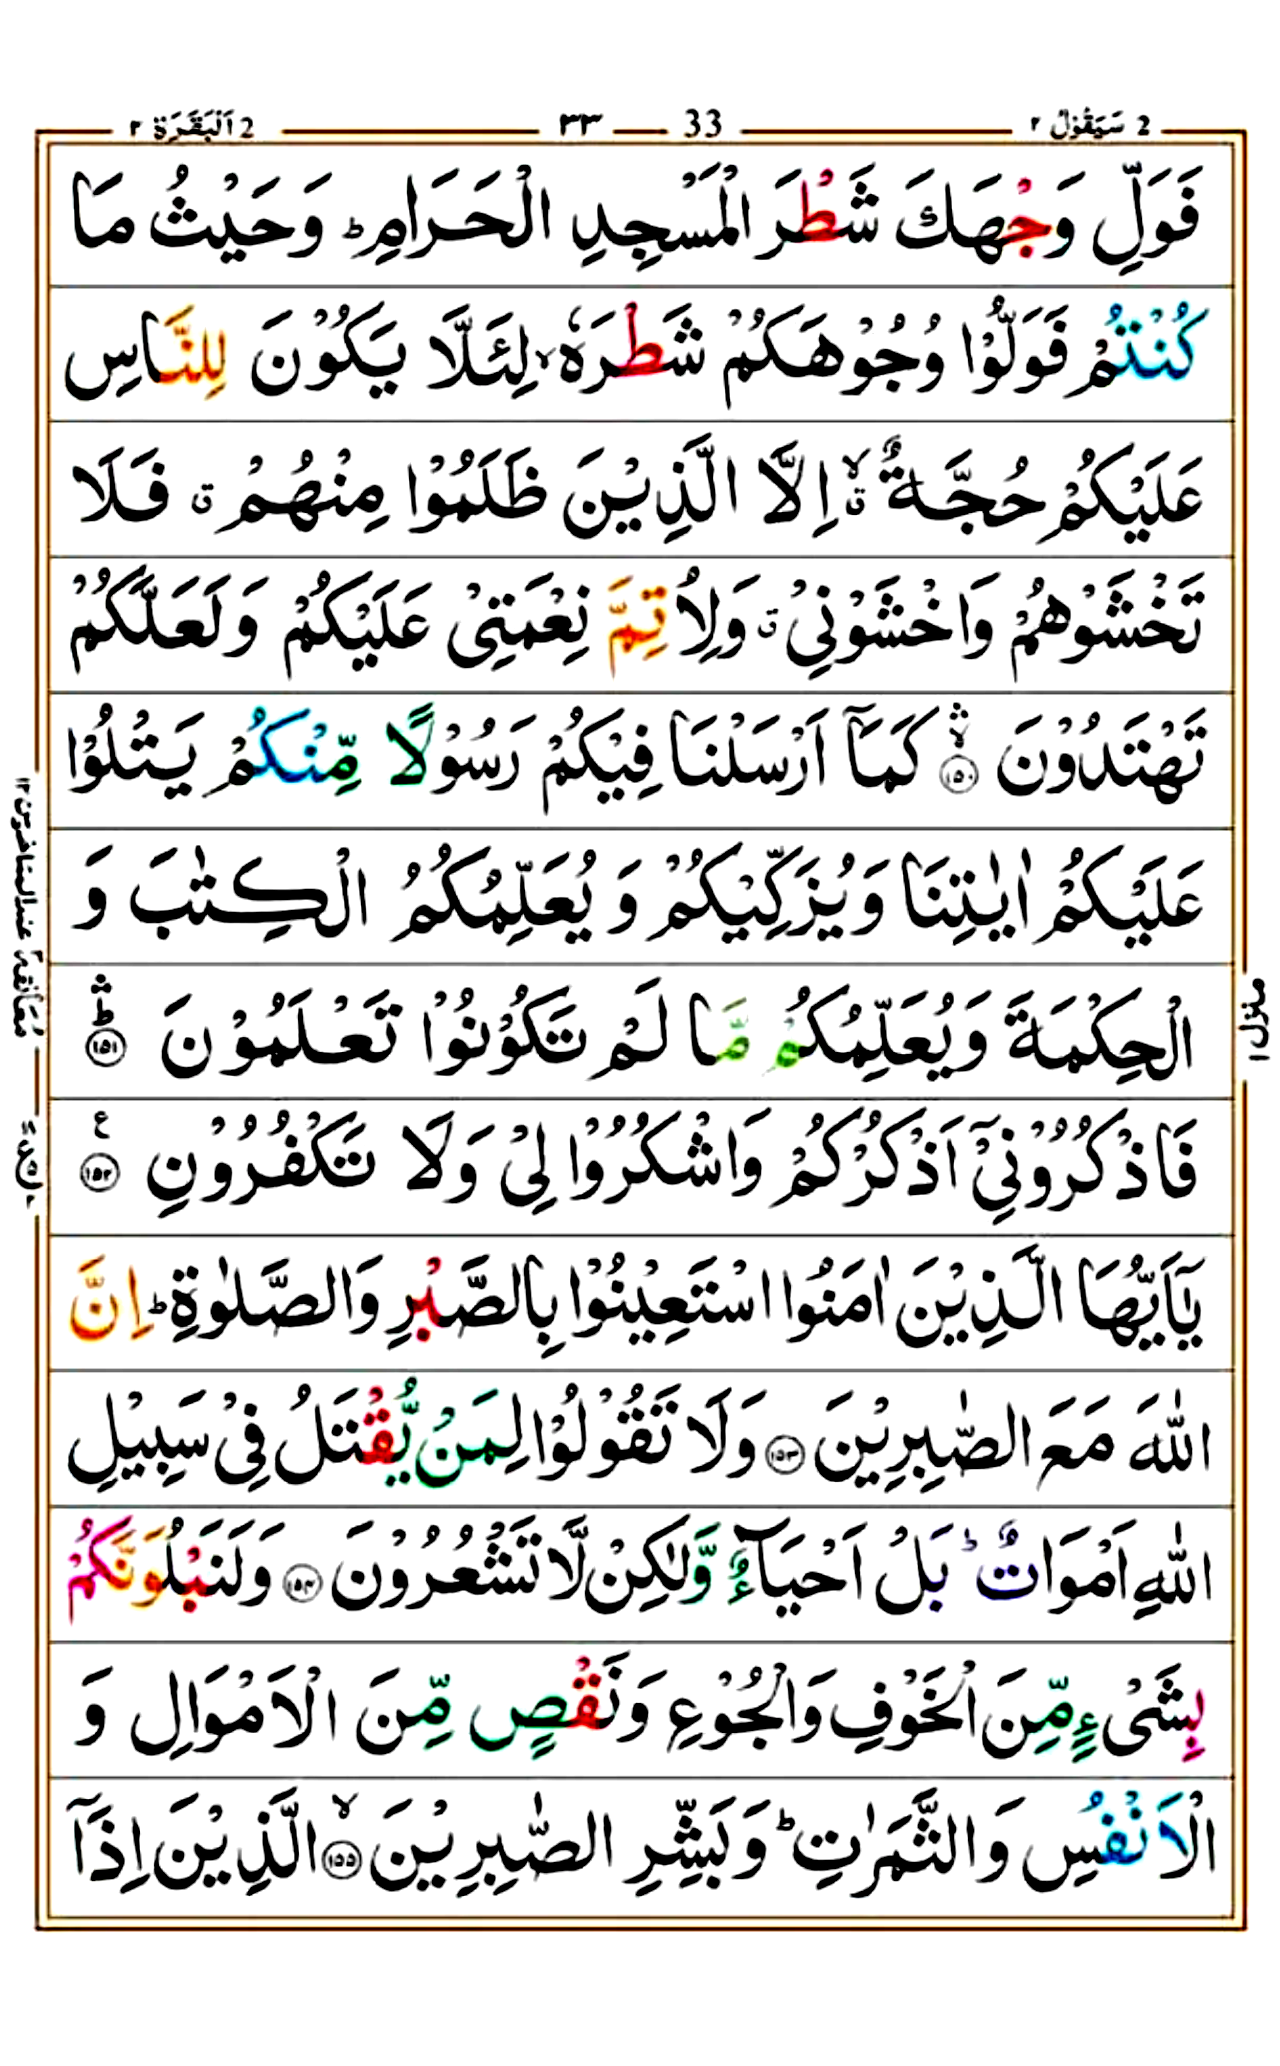 2 سَيَقُوْلُ ٢ 33 ٣٣ 2 اَلْبَقَرَة ٢
فَوَلِّ وَجْهَكَ شَطْرَ الْمَسْجِدِ الْحَرَامِ ؕ وَحَيْثُ مَا
كُنْتُمْ فَوَلُّوْا وُجُوْهَكُمْ شَطْرَهٗ ۙ لِئَلَّا يَكُوْنَ لِلنَّاسِ
عَلَيْكُمْ حُجَّةٌ ۙۗ اِلَّا الَّذِيْنَ ظَلَمُوْا مِنْهُمْ ۗ فَلَا
تَخْشَوْهُمْ وَاخْشَوْنِيْ ۗ وَلِاُتِمَّ نِعْمَتِيْ عَلَيْكُمْ وَلَعَلَّكُمْ
تَهْتَدُوْنَ ۛۙ ﴿١٥٠﴾ كَمَآ اَرْسَلْنَا فِيْكُمْ رَسُوْلًا مِّنْكُمْ يَتْلُوْا
عَلَيْكُمْ اٰيٰتِنَا وَيُزَكِّيْكُمْ وَيُعَلِّمُكُمُ الْكِتٰبَ وَ
الْحِكْمَةَ وَيُعَلِّمُكُمْ مَّا لَمْ تَكُوْنُوْا تَعْلَمُوْنَ ۛؕ ﴿١٥١﴾
فَاذْكُرُوْنِيْٓ اَذْكُرْكُمْ وَاشْكُرُوْا لِيْ وَلَا تَكْفُرُوْنِ ﴿١٥٢﴾ ع
يٰٓاَيُّهَا الَّذِيْنَ اٰمَنُوا اسْتَعِيْنُوْا بِالصَّبْرِ وَالصَّلٰوةِ ؕ اِنَّ
اللّٰهَ مَعَ الصّٰبِرِيْنَ ﴿١٥٣﴾ وَلَا تَقُوْلُوْا لِمَنْ يُّقْتَلُ فِيْ سَبِيْلِ
اللّٰهِ اَمْوَاتٌ ؕ بَلْ اَحْيَآءٌ وَّلٰكِنْ لَّا تَشْعُرُوْنَ ﴿١٥٤﴾ وَلَنَبْلُوَنَّكُمْ
بِشَيْءٍ مِّنَ الْخَوْفِ وَالْجُوْعِ وَنَقْصٍ مِّنَ الْاَمْوَالِ وَ
الْاَنْفُسِ وَالثَّمَرٰتِ ؕ وَبَشِّرِ الصّٰبِرِيْنَ ۙ ﴿١٥٥﴾ الَّذِيْنَ اِذَآ
منزل ١